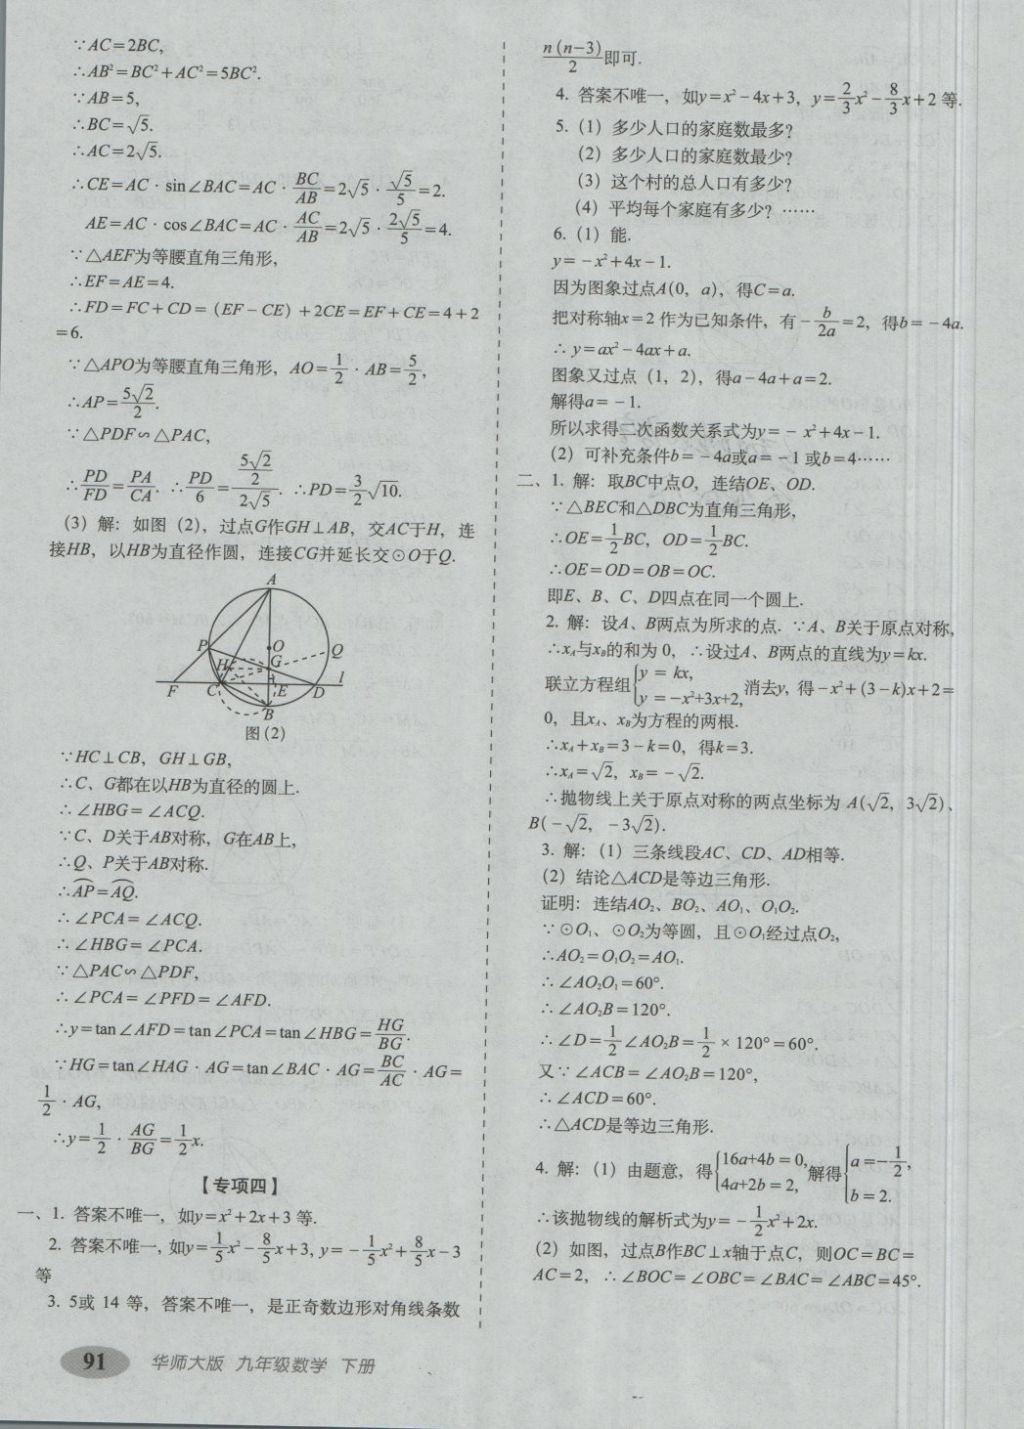 ∵AC=2BC,
∴AB²=BC²+AC²=5BC².
∵AB=5,
∴BC=√5.
∴AC=2√5.
∴CE=AC·sin∠BAC=AC·BC/AB=2√5·√5/5=2.
AE=AC·cos∠BAC=AC·AC/AB=2√5·2√5/5=4.
∵△AEF为等腰直角三角形,
∴EF=AE=4.
∴FD=FC+CD=(EF-CE)+2CE=EF+CE=4+2
=6.
∵△APO为等腰直角三角形，AO=1/2·AB=5/2,
∴AP=5√2/2.
∵△PDF∽△PAC,
∴PD/FD=PA/CA. ∴PD/6=(5√2/2)/(2√5). ∴PD=3/2√10.
(3) 解：如图 (2)，过点G作GH⊥AB，交AC于H，连
接HB，以HB为直径作圆，连接CG并延长交⊙O于Q.
A
P
O
Q
H
G
F
C
E
D
l
B
图 (2)
∵HC⊥CB，GH⊥GB,
∴C、G都在以HB为直径的圆上.
∴∠HBG=∠ACQ.
∵C、D关于AB对称，G在AB上,
∴Q、P关于AB对称.
∴AP=AQ.
∴∠PCA=∠ACQ.
∴∠HBG=∠PCA.
∵△PAC∽△PDF,
∴∠PCA=∠PFD=∠AFD.
∴y=tan∠AFD=tan∠PCA=tan∠HBG=HG/BG.
∵HG=tan∠HAG·AG=tan∠BAC·AG=BC/AC·AG=
1/2·AG,
∴y=1/2·AG/BG=1/2x.
【专项四】
一、1. 答案不唯一，如y=x²+2x+3 等.
2. 答案不唯一, 如y=1/5x²-8/5x+3, y=-1/5x²+8/5x-3
等
3. 5或 14 等，答案不唯一，是正奇数边形对角线条数
n(n-3)/2即可.
4. 答案不唯一，如y=x²-4x+3，y=2/3x²-8/3x+2 等.
5. (1) 多少人口的家庭数最多?
(2) 多少人口的家庭数最少?
(3) 这个村的总人口有多少?
(4) 平均每个家庭有多少? ……
6. (1) 能.
y=-x²+4x-1.
因为图象过点A(0，a)，得C=a.
把对称轴x=2 作为已知条件，有-b/2a=2，得b=-4a.
∴y=ax²-4ax+a.
图象又过点 (1，2)，得a-4a+a=2.
解得a=-1.
所以求得二次函数关系式为y=-x²+4x-1.
(2) 可补充条件b=-4a或a=-1 或b=4……
二、1. 解：取BC中点O，连结OE、OD.
∵△BEC和△DBC为直角三角形,
∴OE=1/2BC，OD=1/2BC.
∴OE=OD=OB=OC.
即E、B、C、D四点在同一个圆上.
2. 解：设A、B两点为所求的点. ∵A、B关于原点对称,
∴x_A与x_B的和为 0，∴设过A、B两点的直线为y=kx.
联立方程组{y=kx, y=-x²+3x+2, 消去y, 得-x²+(3-k)x+2=
0，且x_A、x_B为方程的两根.
∴x_A+x_B=3-k=0，得k=3.
∴x_A=√2，x_B=-√2.
∴抛物线上关于原点对称的两点坐标为 A(√2，3√2)、
B(-√2，-3√2).
3. 解：(1) 三条线段AC、CD、AD相等.
(2) 结论△ACD是等边三角形.
证明：连结AO₂、BO₂、AO₁、O₁O₂.
∵⊙O₁、⊙O₂为等圆，且⊙O₁经过点O₂,
∴AO₂=O₁O₂=AO₁.
∴∠AO₂O₁=60°.
∴∠AO₂B=120°.
∴∠D=1/2∠AO₂B=1/2×120°=60°.
又∵∠ACB=∠AO₂B=120°,
∴∠ACD=60°.
∴△ACD是等边三角形.
4. 解：(1) 由题意，得{16a+4b=0, 4a+2b=2, 解得{a=-1/2, b=2.
∴该抛物线的解析式为y=-1/2x²+2x.
(2) 如图，过点B作BC⊥x轴于点C，则OC=BC=
AC=2，∴∠BOC=∠OBC=∠BAC=∠ABC=45°.
91 华师大版 九年级数学 下册